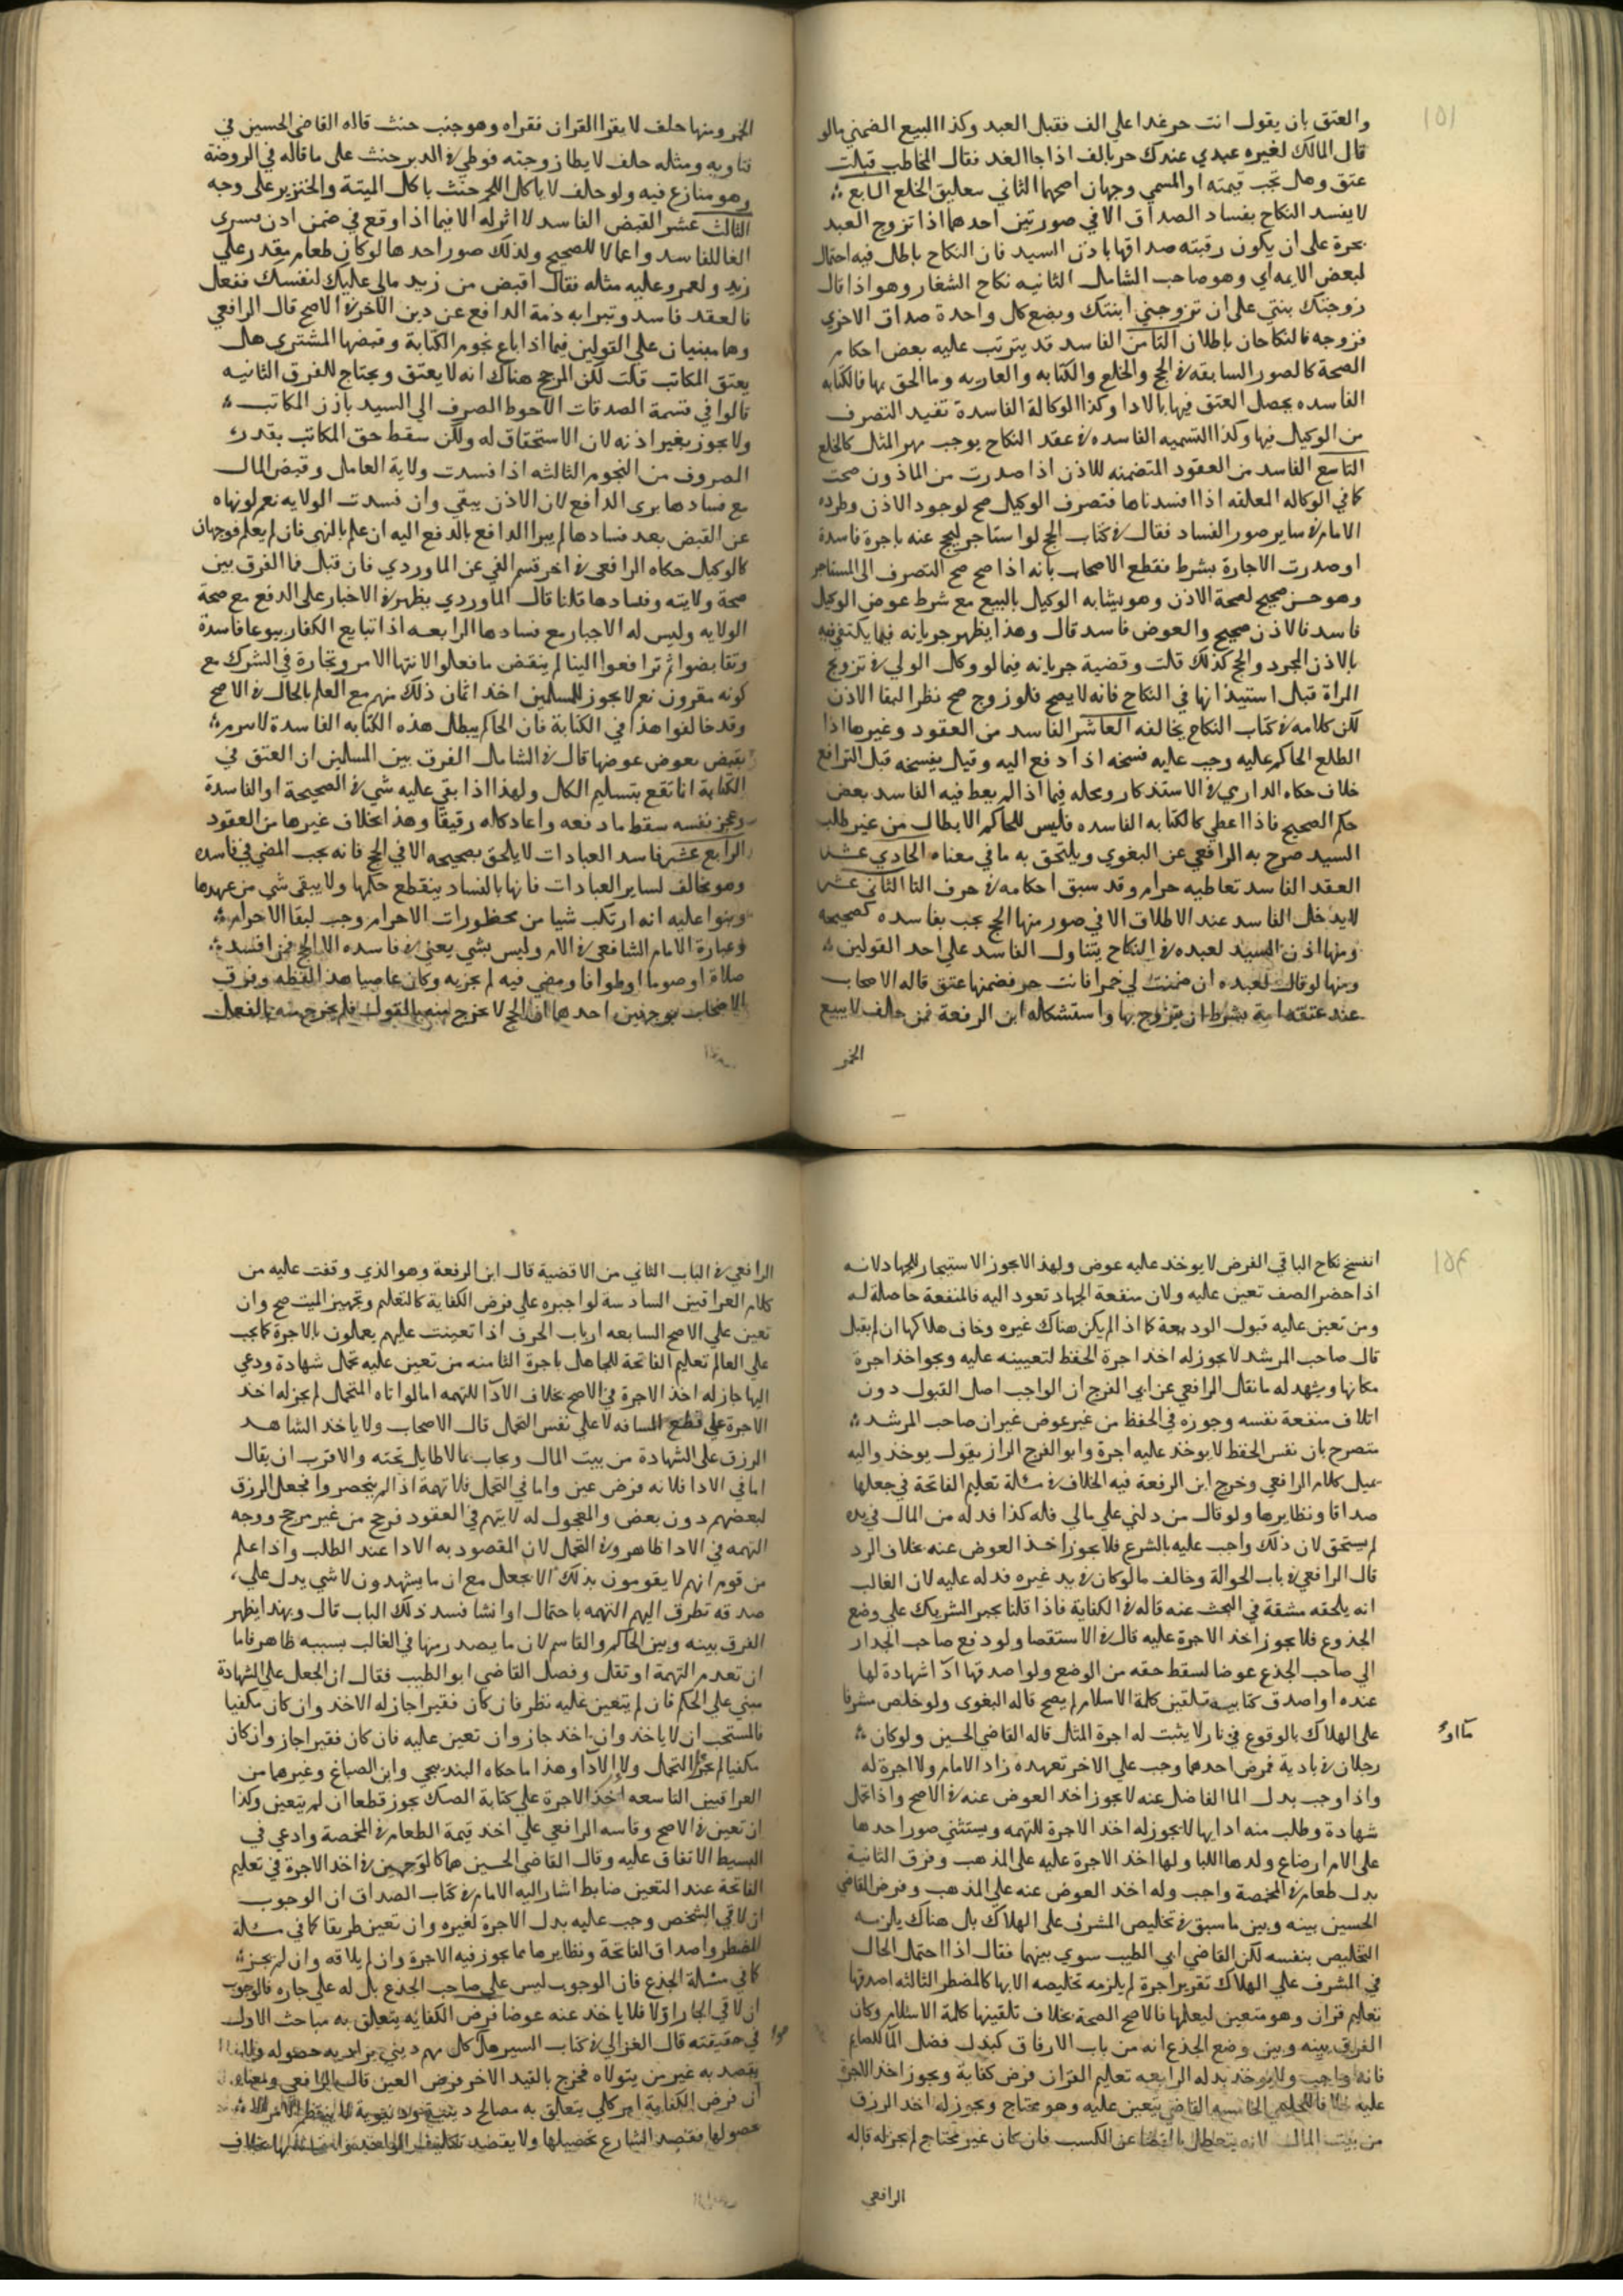 ١٥١
والعتق بان يقول انت حر غدا علي الف فقبل العبد وكذا البيع الضمني بالو
قال المالك لغيره عبدي عندك حر بالف اذا جا الغد فقال المخاطب قبلت
عتق وهل تجب قيمته او المسمي وجهان اصحهما الثاني سعليق الخلع السابع
لا يفسد النكاح بفساد الصداق الا في صورتين احدهما اذا تزوج العبد
بحرة علي ان يكون رقبته صداقها باذن السيد فان النكاح باطل فيه احتمال
لبعض الايمه اي وهو صاحب الشامل الثانيه نكاح الشغار وهو اذا قال
زوجتك بنتي علي ان تزوجني ابنتك وبضع كل واحدة صداق الاخري
فزوجه فالنكاحان باطلان الثامن الفاسد قد يترتب عليه بعض احكام
الصحة كالصور السابقه في الحج والخلع والكتابه والعاريه وما الحق بها فالكتابه
الفاسده يحصل العتق فيها بالادا وكذا الوكالة الفاسدة تفيد التصرف
من الوكيل فيها وكذا التسميه الفاسده في عقد النكاح يوجب مهر المثل كالخلع
التاسع الفاسد من العقود المتضمنه للاذن اذا صدرت من الماذون صحت
كما في الوكاله المعلقه اذا افسدناها فتصرف الوكيل صح لوجود الاذن وطرده
الامام في ساير صور الفساد فقال في كتاب الحج لو استاجر ليحج عنه باجرة فاسدة
او صدرت الاجارة بشرط فقطع الاصحاب بانه اذا صح صح التصرف الي المستاجر
وهو حسن صحيح لصحة الاذن وهو يشابه الوكيل بالبيع مع شرط عوض الوكيل
فاسد فالاذن صحيح والعوض فاسد قال وهذا يظهر جريانه فيما يكتفي فيه
بالاذن المجرد والحج كذلك قلت وقضية جريانه فيما لو وكل الولي في تزويج
المراة قبل استيذانها في النكاح فانه لا يصح فلو زوج صح نظرا لبقا الاذن
لكن كلامه في كتاب النكاح يخالفه العاشر الفاسد من العقود وغيرها اذا
اطلع الحاكم عليه وجب عليه فسخه اذا دفع اليه وقيل يفسخه قبل الترافع
خلاف حكاه الداري في الاستذكار ومحله فيما اذا لم يعط فيه الفاسد بعض
حكم الصحيح فاذا اعطي كالكتابه الفاسده فليس للحاكم الابطال من غير طلب
السيد صرح به الرافعي عن البغوي ويلتحق به ما في معناه الحادي عشر
العقد الفاسد تعاطيه حرام وقد سبق احكامه في حرف التا الثاني عشر
لا يدخل الفاسد عند الاطلاق الا في صور منها الحج يجب بفاسده كصحيحه
ومنها اذن السيد لعبده في النكاح يتناول الفاسد علي احد القولين
ومنها لو قال لعبده ان ضمنت لي خمرا فانت حر فضمنها عتق قاله الاصحاب
عند عتقه امة بشرط ان يتزوج بها واستشكله ابن الرفعة فمن حالف لا يبيع
الخمر
الخمر ومنها حلف لا يقرا القران فقراه وهو جنب حنث قاله القاضي الحسين في
فتاويه ومثله حلف لا يطا زوجته فوطي في الدبر حنث علي ما قاله في الروضة
وهو منازع فيه ولو حلف لا ياكل اللحم حنث باكل الميتة والخنزير علي وجه
الثالث عشر القبض الفاسد لا اثر له الا فيما اذا وقع في ضمن اذن يسري
الغا للفاسد واعمالا للصحيح ولذلك صور احدها لو كان طعام مقدر علي
زيد ولعمرو عليه مثله فقال اقبض من زيد مالي عليك لنفسك ففعل
فالعقد فاسد وتبرا به ذمة الدافع عن دين الاخر في الاصح قال الرافعي
وهما مبنيان علي القولين فيما اذا باع نجوم الكتابة وقبضها المشتري هل
يعتق المكاتب قلت لكن المرجح هناك انه لا يعتق ويحتاج للفرق الثانيه
قالوا في قسمة الصدقات الاحوط الصرف الي السيد باذن المكاتب
ولا يجوز بغير اذنه لان الاستحقاق له ولكن سقط حق المكاتب بقدر
المصروف من النجوم الثالثه اذا فسدت ولاية العامل وقبض المال
مع فسادها بري الدافع لان الاذن يبقي وان فسدت الولايه نعم لو نهاه
عن القبض بعد فسادها لم يبرا الدافع بالدفع اليه ان علم بالنهي فان لم يعلم فوجهان
كالوكيل حكاه الرافعي في اخر قسم الفي عن الماوردي فان قيل فما الفرق بين
صحة ولايته وفسادها قلنا قال الماوردي يظهر في الاخبار علي الدفع مع صحة
الولايه وليس له الاجبار مع فسادها الرابعه اذا تبايع الكفار بيوعا فاسدة
وتقابضوا ثم ترافعوا الينا لم ينقض ما فعلوا لانتها الامر وتجارة في الشرك مع
كونه مقرون نعم لا يجوز للمسلمين اخذ اثمان ذلك منهم مع العلم بالحال في الاصح
وقد خالفوا هذا في الكتابة فان الحاكم يبطل هذه الكتابه الفاسدة لا سر مر
بقبض بعوض عوضها قال في الشامل الفرق بين المسلمين ان العتق في
الكتابة انما تقع بتسليم الكل ولهذا اذا بقي عليه شي في الصحيحة او الفاسدة
وعجز نفسه سقط ما دفعه واعاد كله رقيقا وهذا بخلاف غيرها من العقود
الرابع عشر فاسد العبادات لا يلحق بصحيحه الا في الحج فانه يجب المضي في فاسده
وهو مخالف لساير العبادات فانها بالفساد ينقطع حكمها ولا يبقي شي من عهدها
وبنوا عليه انه ارتكب شيا من محظورات الاحرام وجب لبقا الاحرام
وعبارة الامام الشافعي في الام وليس بشي يعني في فاسده الا الحج فمن افسد
صلاة او صوما او طوافا ومضي فيه لم يجزيه وكان عاصيا هذا لفظه وفرق
الاصحاب بوجهين احدهما ان الحج لا يخرج منه بالقول فلم يخرج منه بالفعل
١٥٢
انفسخ نكاح الباقي الفرض لا يوخذ عليه عوض ولهذا لا يجوز الاستيجار للجهاد لانه
اذا حضر الصف تعين عليه ولان منفعة الجهاد تعود اليه فالمنفعة حاصلة له
ومن تعين عليه قبول الوديعة كما اذا لم يكن هناك غيره وخاف هلاكها ان لم يقبل
قال صاحب المرشد لا يجوز له اخذ اجرة الحفظ لتعيينه عليه ويجوا خذ اجرة
مكانها ويشهد له ما نقل الرافعي عن ابي الفرج ان الواجب اصل القبول دون
اتلاف منفعة نفسه وجوزه في الحفظ من غير عوض غير ان صاحب المرشد
متصرح بان نفس الحفظ لا يوخذ عليه اجرة وابو الفرج الراز يقول يوخذ واليه
يميل كلام الرافعي وخرج ابن الرفعة فيه الخلاف في مسئلة تعليم الفاتحة في جعلها
صداقا ونظايرها ولو قال من دلني علي مالي فله كذا فدله من المال في يده
لم يستحق لان ذلك واجب عليه بالشرع فلا يجوز اخذ العوض عنه بخلاف الرد
قال الرافعي في باب الحوالة وخالف ما لو كان في يد غيره فدله عليه لان الغالب
انه يلحقه مشقة في البحث عنه قاله في الكفاية فاذا قلنا يجبر الشريك علي وضع
الجذوع فلا يجوز اخذ الاجرة عليه قال في الاستقصا ولو دفع صاحب الجدار
الي صاحب الجذع عوضا لسقط حقه من الوضع ولو اصدقها ادا شهادة لها
عنده او اصدق كتابية تلقين كلمة الاسلام لم يصح قاله البغوي ولو خلص مشرفا
علي الهلاك بالوقوع في نار لا يثبت له اجرة المثل قاله القاضي الحسين ولو كان
رجلان في بادية فمرض احدهما وجب علي الاخر تعهده زاد الامام ولا اجرة له
واذا وجب بدل الما الفاضل عنه لا يجوز اخذ العوض عنه في الاصح واذا تحمل
شهادة وطلب منه اداها لا يجوز له اخذ الاجرة للتهمه ويستثني صور احدها
علي الام ارضاع ولدها اللبا ولها اخذ الاجرة عليه علي المذهب وفرق الثانية
بدل طعام في المخمصة واجب وله اخذ العوض عنه علي المذهب وفرض القاضي
الحسين بينه وبين ما سبق في تخليص المشرف علي الهلاك بال هناك يلزمه
التخليص بنفسه لكن القاضي ابي الطيب سوي بينهما فقال اذا احتمل الحال
في المشرف علي الهلاك تقرير اجرة لم يلزمه تخليصه الا بها كالمضطر الثالثه اصدقها
تعليم قران وهو متعين ليعلمها فالاصح الصحة بخلاف تلقينها كلمة الاسلام وكان
الفرق بينه وبين وضع الجذع انه من باب الارفاق كبدل فضل الما
فانه واجب ولا يوخذ بدله الرابعه تعليم القران فرض كفاية ويجوز اخذ الاجرة
عليه الخامسه القاضي يتعين عليه وهو محتاج ويجوز له اخذ الرزق
من بيت المال لانه يتعطل بالقضا عن الكسب فان كان غير محتاج لم يجز له قاله
الرافعي
الرافعي في الباب الثاني من الاقضية قال ابن الرفعة وهو الذي وقفت عليه من
كلام العراقيين السادسة لو اجبره علي فرض الكفاية كالتعليم وتجهيز الميت صح وان
تعين علي الاصح السابعه ارباب الحرف اذا تعينت عليهم يعملون بالاجرة كما يجب
علي العالم تعليم الفاتحة للجاهل باجرة الثامنه من تعين عليه تحمل شهادة ودعي
اليها جاز له اخذ الاجرة في الاصح بخلاف الادا للتهمه اما لو اتاه المتحمل لم يجز له اخذ
الاجرة علي قطع المسافه لا علي نفس التحمل قال الاصحاب ولا ياخذ الشاهد
الرزق علي الشهادة من بيت المال ويجاب بما لا طايل تحته والاقرب ان يقال
اما في الادا فلانه فرض عين واما في التحمل فلا تهمة اذا لم ينحصروا فجعل الرزق
لبعضهم دون بعض والمجعول له لا يتهم في العقود فرجح من غير مرجح ووجه
التهمه في الادا ظاهر وفي التحمل لان المقصود به الادا عند الطلب واذا علم
من قوم انهم لا يقومون بذلك الا بجعل مع ان ما يشهدون لا شي يدل علي
صدقه تطرق اليهم التهمه باحتمال او انشا فسد ذلك الباب قال وبهذا يظهر
الفرق بينه وبين الحاكم والقاسم لان ما يصدر منها في الغالب بسببه ظاهر فاما
ان تعدم التهمة او تقل وفصل القاضي ابو الطيب فقال ان الجعل علي الشهادة
مبني علي الحكم فان لم يتعين عليه نظر فان كان فقيرا جاز له الاخذ وان كان مكفيا
فالمستحب ان لا ياخذ وان اخذ جاز وان تعين عليه فان كان فقيرا جاز وان كان
مكفيا لم يجز التحمل ولا الادا وهذا ما حكاه البندنيجي وابن الصباغ وغيرهما من
العراقيين التاسعه اخذ الاجرة علي كتابة الصك يجوز قطعا ان لم يتعين وكذا
ان تعين في الاصح وقاسه الرافعي علي اخذ قيمة الطعام في المخمصة وادعي في
البسيط الاتفاق عليه وقال القاضي الحسين هما كالوجهين في اخذ الاجرة في تعليم
الفاتحة عند التعين ضابط اشار اليه الامام في كتاب الصداق ان الوجوب
ان لاقي الشخص وجب عليه بدل الاجرة لغيره وان تعين طريقا كما في مسئلة
المضطر واصداق الفاتحة ونظايرها مما يجوز فيه الاجرة وان لم يلاقه وان لم يجز
كما في مسئلة الجذع فان الوجوب ليس علي صاحب الجذع بل له علي جاره فالوجوب
ان لاقي الجار اولا فلا ياخذ عنه عوضا فرض الكفايه يتعلق به مباحث الاول
في حقيقته قال الغزالي في كتاب السير هل كل مهم ديني يراد به حصوله ولا
يقصد به عين من يتولاه فخرج بالقيد الاخر فرض العين قال الرافعي ومعناه
ان فرض الكفاية امر كلي يتعلق به مصالح دينية ودنيوية لا ينتظم الامر الا
بحصولها فقصد الشارع تحصيلها ولا يقصد تكليف الواحد